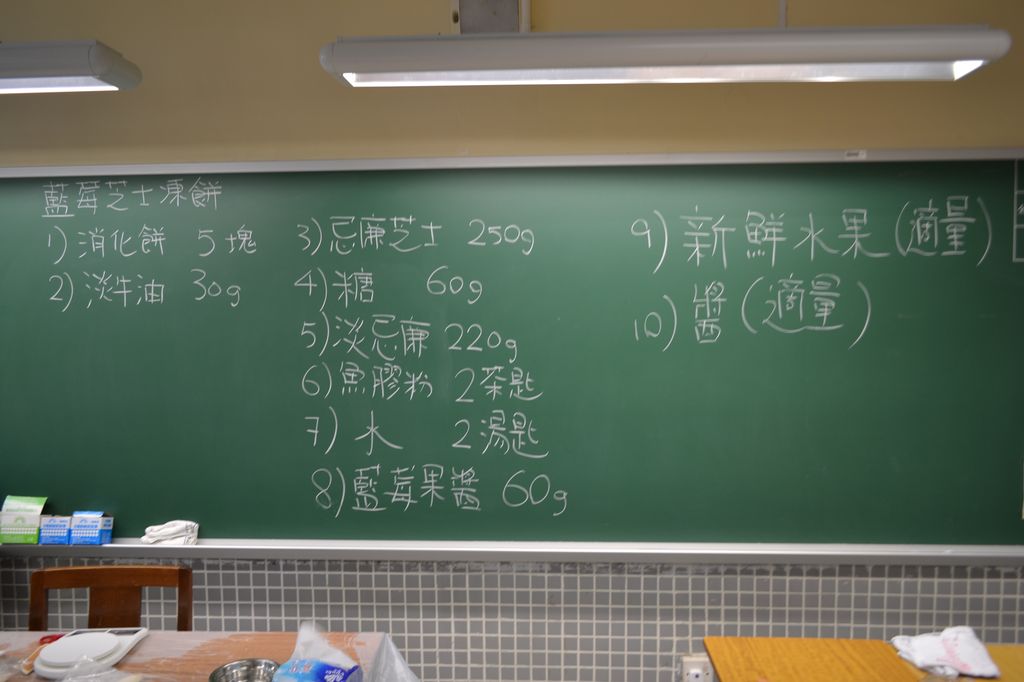 藍莓芝士凍餅
1) 消化餅 5塊
2) 淡牛油 30g
3) 忌廉芝士 250g
4) 糖 60g
5) 淡忌廉 220g
6) 魚膠粉 2茶匙
7) 水 2湯匙
8) 藍莓果醬 60g
9) 新鮮水果 (適量)
10) 醬 (適量)